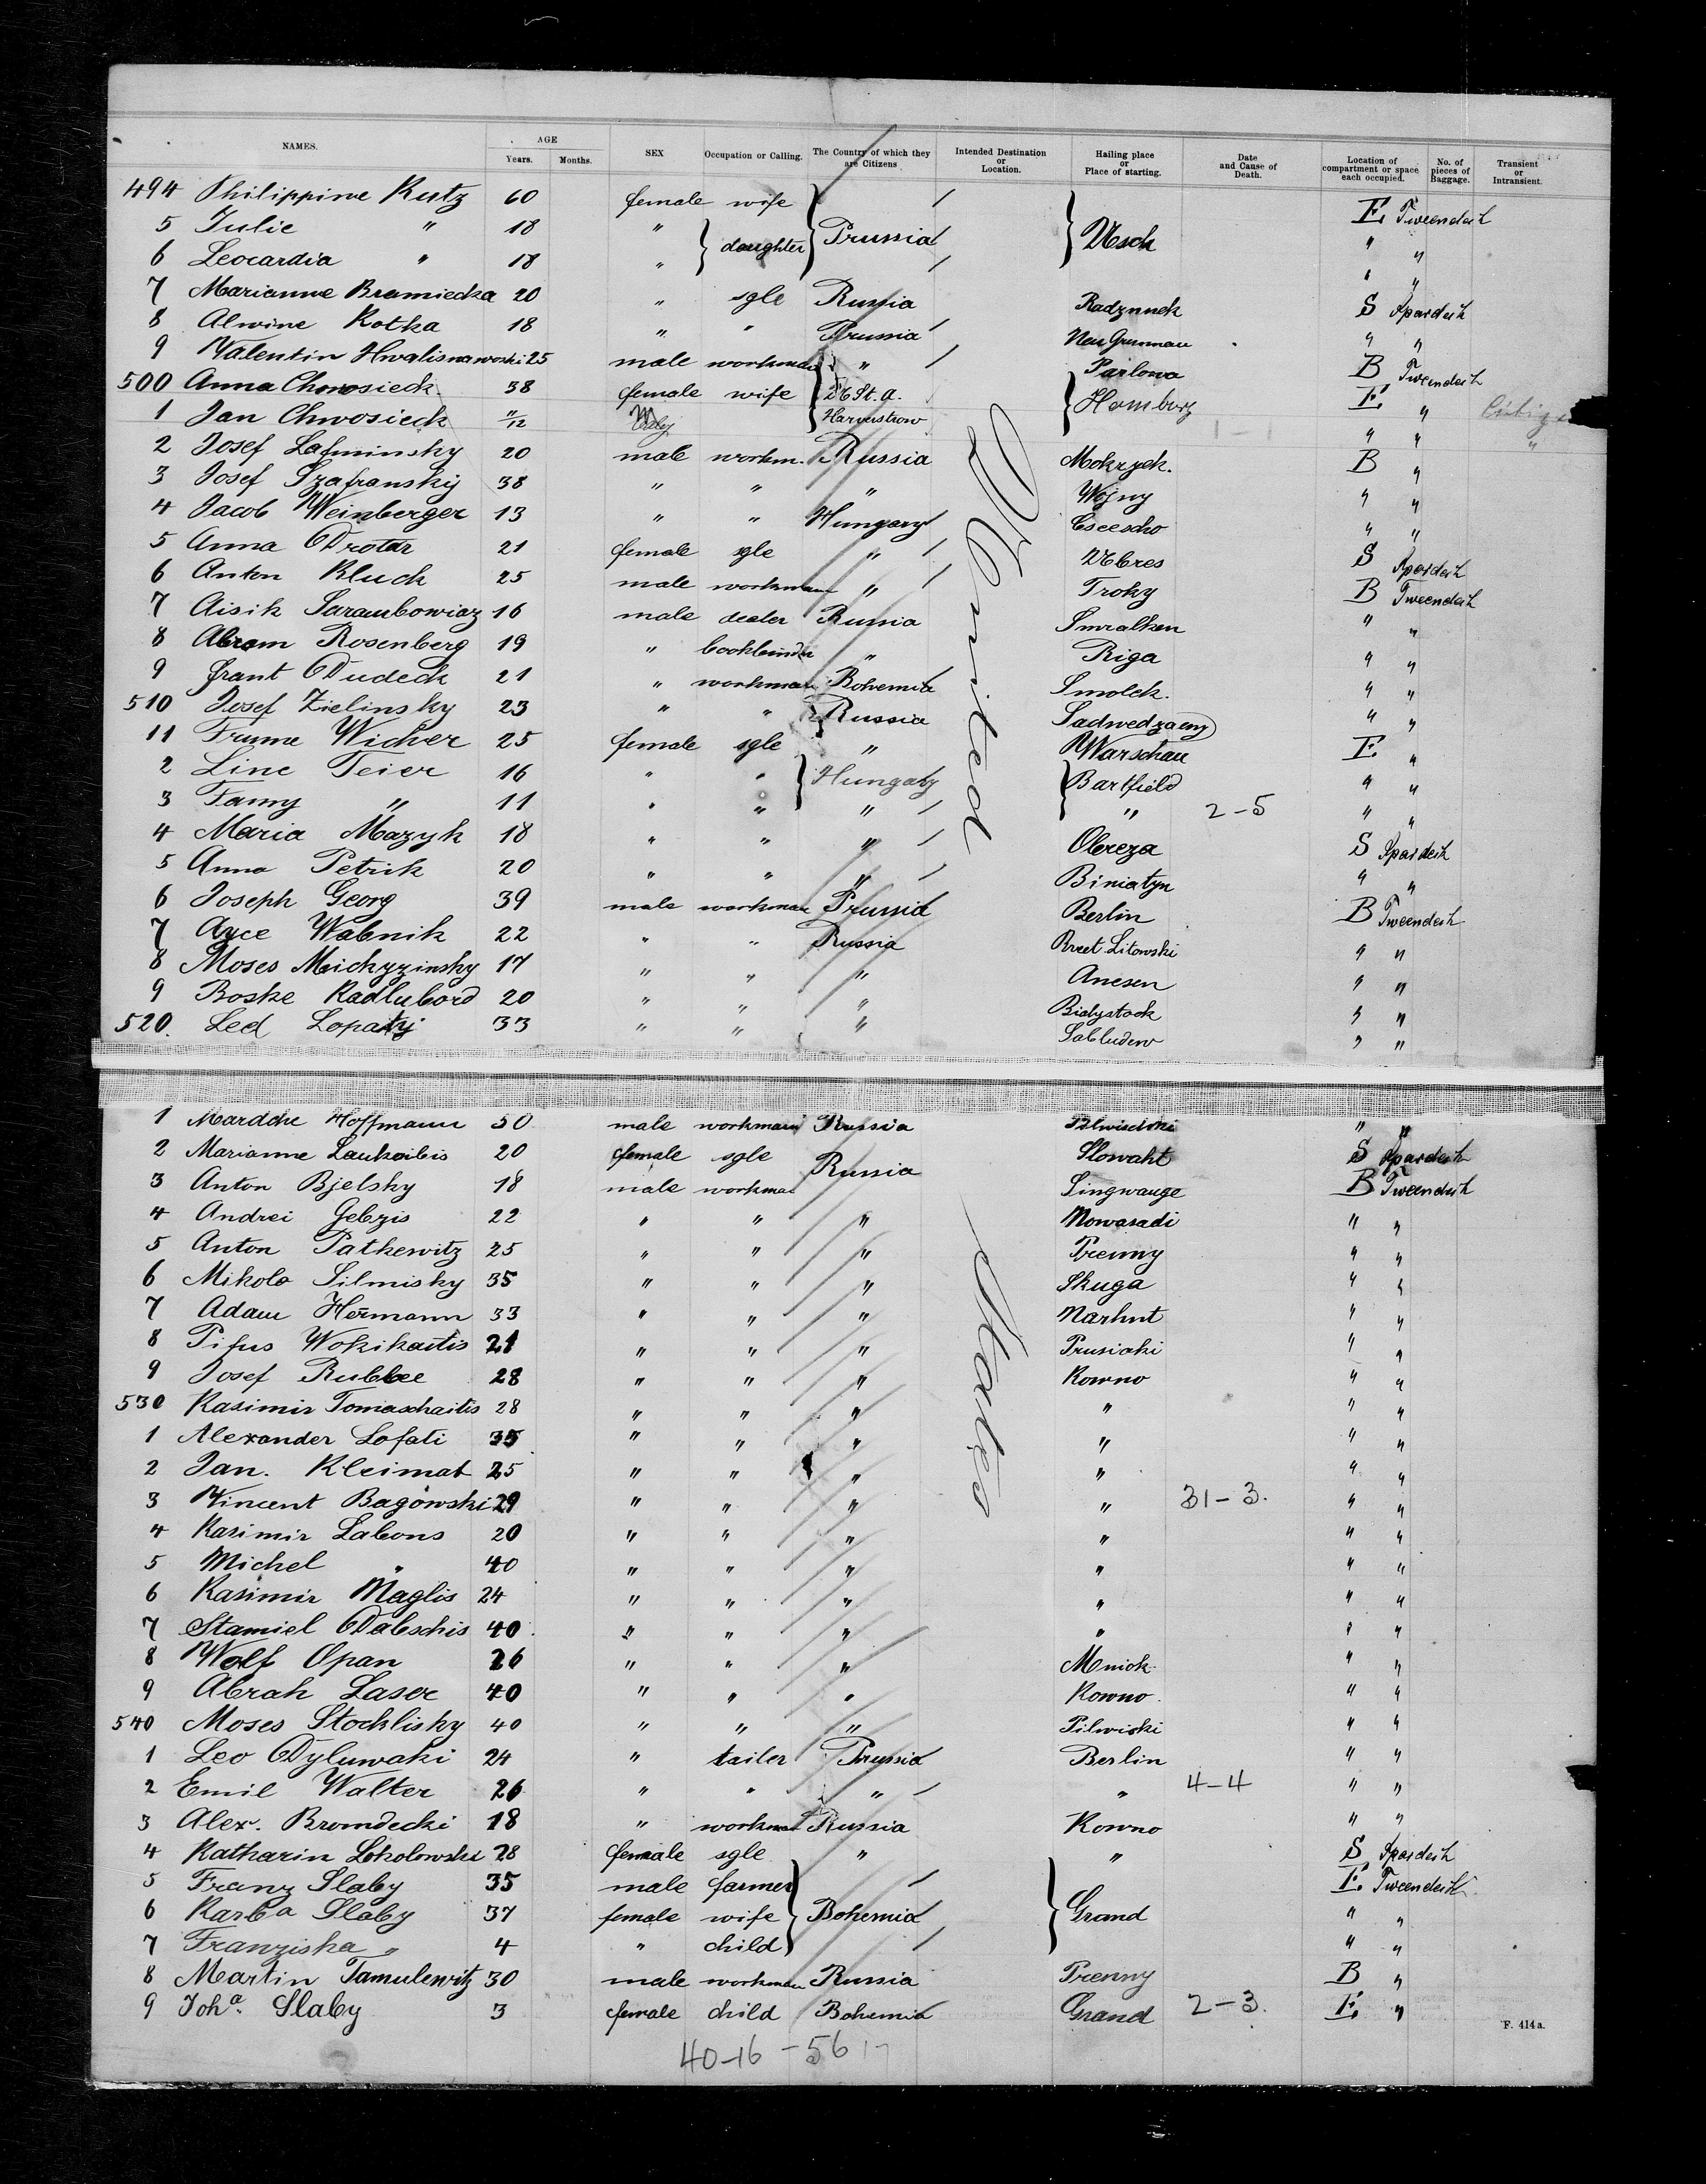 NAMES. AGE Years. Months. SEX Occupation or Calling. The Country of which they are Citizens Intended Destination or Location. Hailing place or Place of starting. Date and Cause of Death. Location of compartment or space each occupied. No. of pieces of Baggage. Transient or Intransient.
494 Philippine Rutz 60 female wife E Tweendeck
5 Julie " 18 " daughter Prussia Usch " "
6 Leocardia " 18 " " "
7 Marianne Bramiecka 20 " sgle Russia Radzynnek S Spardeck
8 Alwine Kotka 18 " " Prussia Neu Grunnau " "
9 Valentin 25 male workman " Parlowa B Tweendeck
500 Anna Chwosieck 38 female wife U St. a. Hamburg E "
1 Jan Chwosieck 11/12 Harverstrow " " "
2 Josef Latminsky 20 male workm. Russia Mokrzek. B "
3 Josef Szafransky 38 " " " Wojny " "
4 Jacob Weinberger 13 " " Hungary Cseescho " "
5 Anna Drotar 21 female sgle " Ubres S Spardeck
6 Anton Kluck 25 male workman " Troky B Tweendeck
7 Aisik Sarambowiaz 16 male dealer Russia Smralken " "
8 Abram Rosenberg 19 " bookbinder " Riga " "
9 Frant Dudeck 21 " workman Bohemia Smolck. " "
510 Josef Zielinsky 23 " " Russia Sadwedzaeny " "
11 Frume Wicher 25 female sgle " Warschau E "
2 Line Teier 16 " " Hungary Bartfield " "
3 Fanny " 11 " " " " 2-5 " "
4 Maria Mazyk 18 " " " Obreza S Spardeck
5 Anna Petrik 20 " " " Biniatyn " "
6 Joseph Georg 39 male workman Prussia Berlin B Tweendeck
7 Ayce Wabnik 22 " " Russia Breet Litowski " "
8 Moses Mickyzinsky 17 " " " Anesen " "
9 Boske Kadlubord 20 " " " Bialystock " "
520. Led Lopaty 33 " " " Sabludew " "
1 Mardche Hoffmann 50 male workman Russia Pilwischki " "
2 Marianne Laukaibis 20 female sgle Russia Slowaht S Spardeck
3 Anton Bjelsky 18 male workman Singwauge B Tweendeck
4 Andrei Gebzis 22 " " " Nowasadi " "
5 Anton Patkewitz 25 " " " Prenny " "
6 Mikolo Silmisky 35 " " " Skuga " "
7 Adam Hermann 33 " " " Narhut " "
8 Pifus Wokikaitis 21 " " " Prusiaki " "
9 Josef Rubbee 28 " " " Kowno " "
530 Kasimir Tomaschaitis 28 " " " " " "
1 Alexander Lofati 35 " " " " " "
2 Jan. Kleimat 25 " " " " " "
3 Vincent Bagowski 29 " " " " 31-3. " "
4 Kasimir Labons 20 " " " " " "
5 Michel " 40 " " " " " "
6 Kasimir Maglis 24 " " " " " "
7 Stamiel Dabschis 40 " " " " " "
8 Wolf Opan 26 " " " Mniok " "
9 Abrah Laser 40 " " " Kowno " "
540 Moses Stocklisky 40 " " " Pilwiski " "
1 Leo Dyluwaki 24 " tailer Prussia Berlin " "
2 Emil Walter 26 " " " " 4-4 " "
3 Alex. Bromdecki 18 " workman Russia Kowno " "
4 Katharin Lokolowski 28 female sgle " " S Spardeck
5 Franz Slaby 35 male farmer E Tweendeck
6 Karba Slaby 37 female wife Bohemia Grand " "
7 Franziska " 4 " child " "
8 Martin Tamulewitz 30 male workman Russia Prenny B "
9 Joha. Slaby 3 female child Bohemia Grand 2-3. E "
United States
40-16-56
F. 414a.